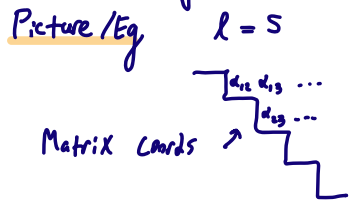 Picture/Eg l = 5
α₁₂ α₁₃ ...
α₂₃ ...
Matrix coords